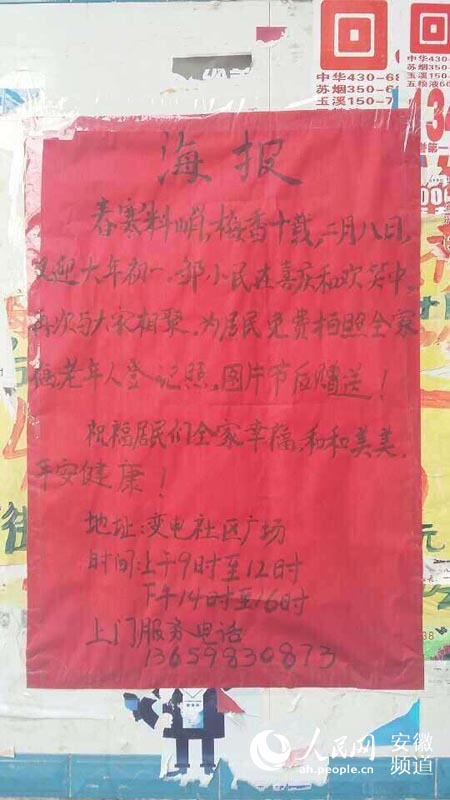 中华430-68
苏烟350-6
玉溪150-7
五粮液60
134
海报
春寒料峭,梅香十载,二月八日,
又迎大年初一。邹小民在喜庆和欢笑中,
再次与大家相聚。为居民免费拍照全家
福老年人登记照,图片节后赠送!
祝福居民们全家幸福,和和美美,
平安健康!
地址:变电社区广场
时间:上午9时至12时
下午14时至16时
上门服务电话
13659830873
人民网 安徽频道
ah.people.cn